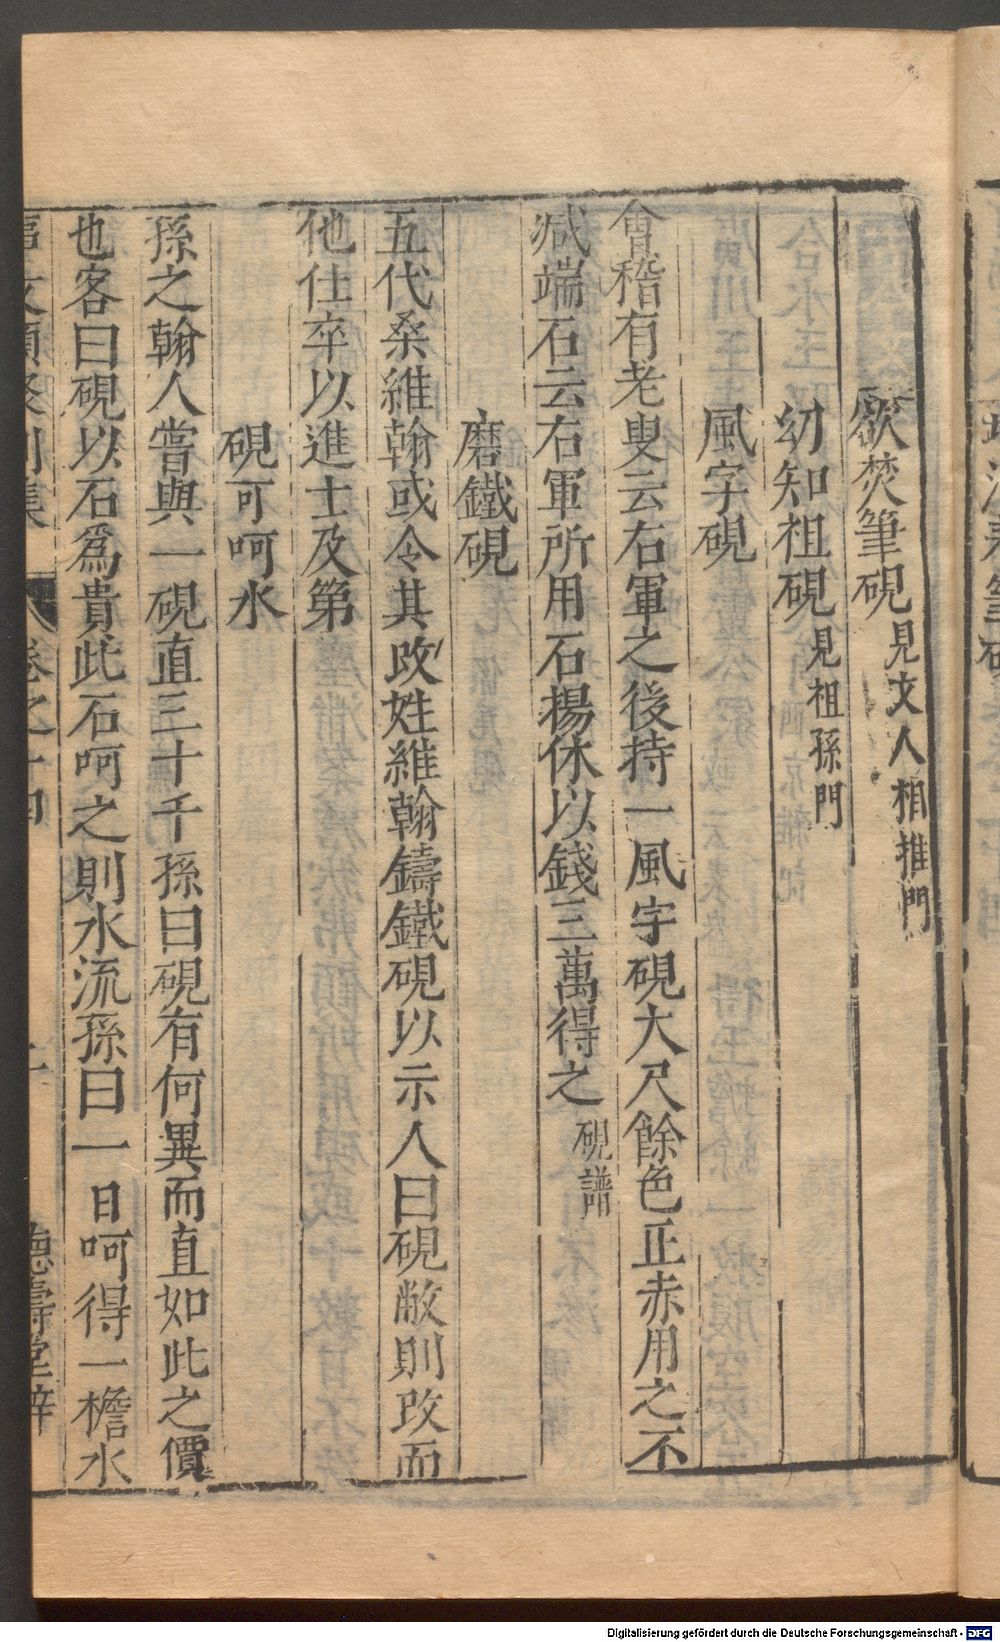 欲焚筆硯見文人相推門
幼知祖硯見祖孫門
風字硯
會稽有老叟云右軍之後持一風字硯大尺餘色正赤用之不
減端石云右軍所用石揚休以錢三萬得之硯譜
磨鐵硯
五代桑維翰或令其改姓維翰鑄鐵硯以示人曰硯敝則改而
他仕卒以進士及第
硯可呵水
孫之翰人嘗與一硯直三十千孫曰硯有何異而直如此之價
也客曰硯以石爲貴此石呵之則水流孫曰一日呵得一檐水
事文類聚別集 卷之十四 德壽堂梓
Digitalisierung gefördert durch die Deutsche Forschungsgemeinschaft - DFG